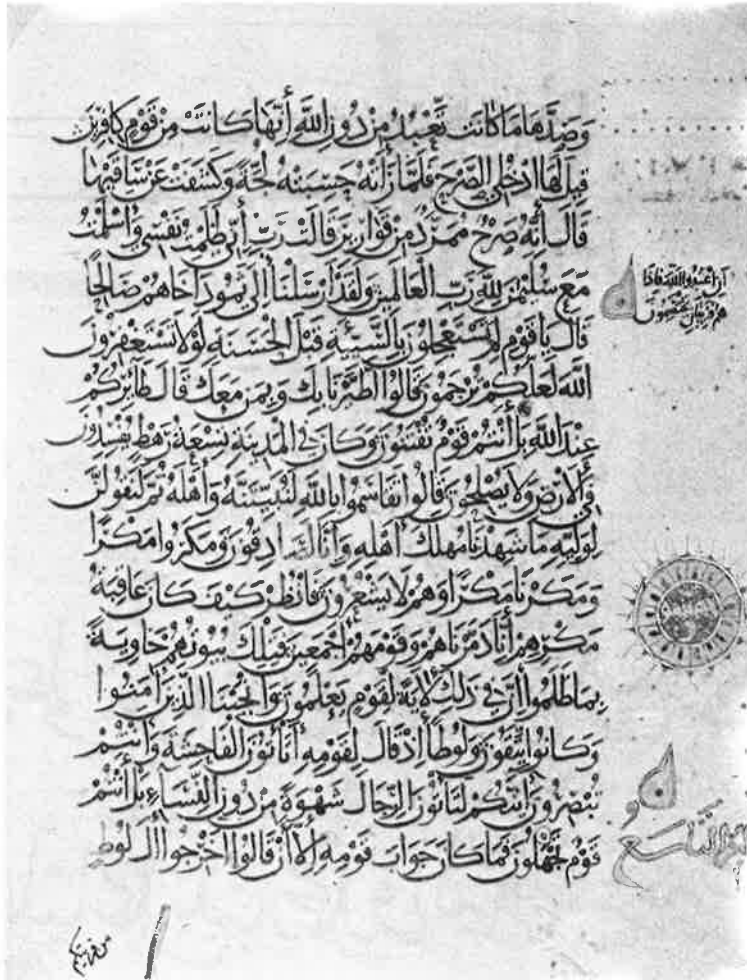 وَصَدَّهَا مَا كَانَت تَّعْبُدُ مِنْ دُونِ اللَّهِ أَنَّهَا كَانَتْ مِنْ قَوْمٍ كَافِرِينَ
قِيلَ لَهَا ادْخُلِي الصَّرْحَ فَلَمَّا رَأَتْهُ حَسِبَتْهُ لُجَّةً وَكَشَفَتْ عَنْ سَاقَيْهَا
قَالَ إِنَّهُ صَرْحٌ مُمَرَّدٌ مِنْ قَوَارِيرَ قَالَتْ رَبِّ إِنِّي ظَلَمْتُ نَفْسِي وَأَسْلَمْتُ
مَعَ سُلَيْمٰنَ لِلَّهِ رَبِّ الْعَالَمِينَ وَلَقَدْ أَرْسَلْنَا إِلَى ثَمُودَ أَخَاهُمْ صَالِحًا
أَنِ اعْبُدُوا اللَّهَ فَإِذَا
هُمْ فَرِيقَانِ يَخْتَصِمُونَ
قَالَ يَا قَوْمِ لِمَ تَسْتَعْجِلُونَ بِالسَّيِّئَةِ قَبْلَ الْحَسَنَةِ لَوْلَا تَسْتَغْفِرُونَ
اللَّهَ لَعَلَّكُمْ تُرْحَمُونَ قَالُوا اطَّيَّرْنَا بِكَ وَبِمَنْ مَعَكَ قَالَ طَائِرُكُمْ
عِنْدَ اللَّهِ بَلْ أَنْتُمْ قَوْمٌ تُفْتَنُونَ وَكَانَ فِي الْمَدِينَةِ تِسْعَةُ رَهْطٍ يُفْسِدُونَ
فِي الْأَرْضِ وَلَا يُصْلِحُونَ قَالُوا تَقَاسَمُوا بِاللَّهِ لَنُبَيِّتَنَّهُ وَأَهْلَهُ ثُمَّ لَنَقُولَنَّ
لِوَلِيِّهِ مَا شَهِدْنَا مَهْلِكَ أَهْلِهِ وَإِنَّا لَصَادِقُونَ وَمَكَرُوا مَكْرًا
وَمَكَرْنَا مَكْرًا وَهُمْ لَا يَشْعُرُونَ فَانْظُرْ كَيْفَ كَانَ عَاقِبَةُ
مَكْرِهِمْ أَنَّا دَمَّرْنَاهُمْ وَقَوْمَهُمْ أَجْمَعِينَ فَتِلْكَ بُيُوتُهُمْ خَاوِيَةً
بِمَا ظَلَمُوا إِنَّ فِي ذَلِكَ لَآيَةً لِقَوْمٍ يَعْلَمُونَ وَأَنْجَيْنَا الَّذِينَ آمَنُوا
وَكَانُوا يَتَّقُونَ وَلُوطًا إِذْ قَالَ لِقَوْمِهِ أَتَأْتُونَ الْفَاحِشَةَ وَأَنْتُمْ
تُبْصِرُونَ أَئِنَّكُمْ لَتَأْتُونَ الرِّجَالَ شَهْوَةً مِنْ دُونِ النِّسَاءِ بَلْ أَنْتُمْ
قَوْمٌ تَجْهَلُونَ فَمَا كَانَ جَوَابَ قَوْمِهِ إِلَّا أَنْ قَالُوا أَخْرِجُوا آلَ لُوطٍ
من قريتكم